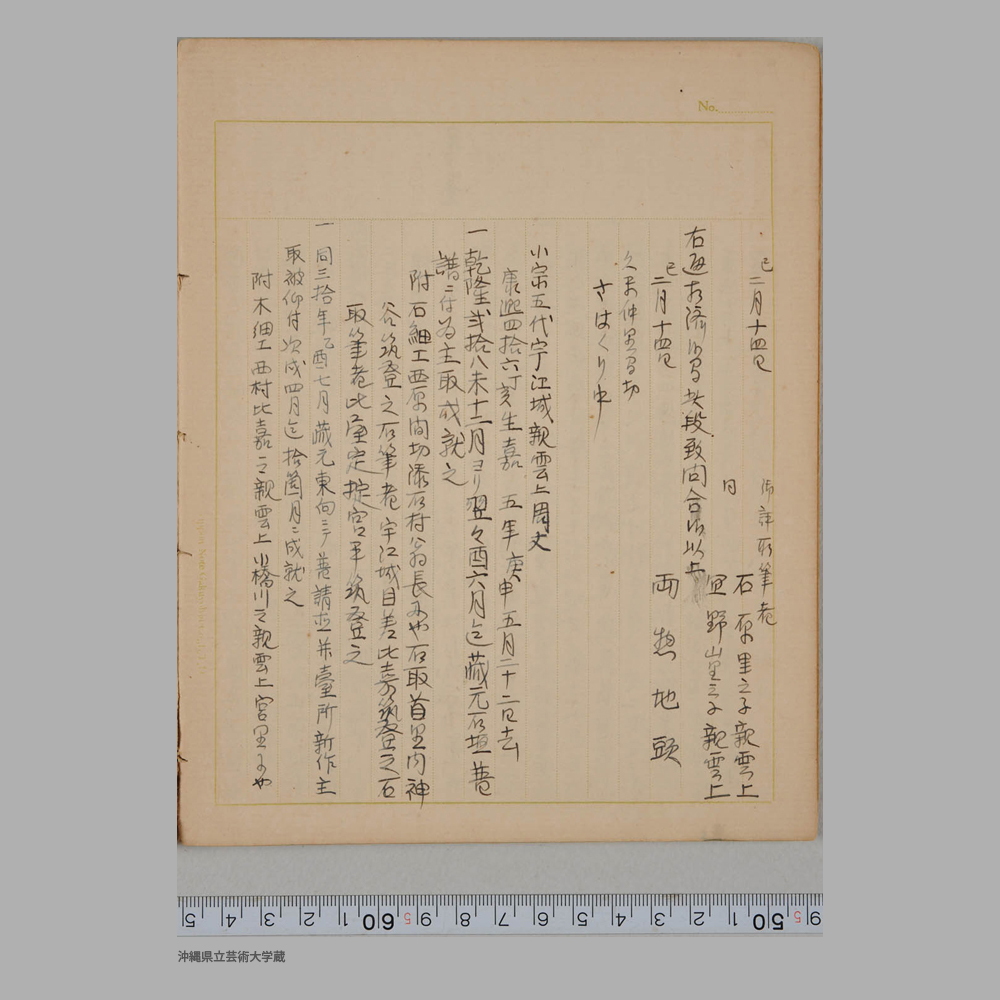 No.
巳二月十四日
御評所筆者
石原里之子親雲上
同
宜野山里之子親雲上
右通相済候間其段致問合候以上
巳二月十四日
両惣地頭
久米仲里間切
さはくり中
小宗五代宇江城親雲上周丈
康熙四拾六丁亥生嘉 五年庚申五月二十二日去
一乾隆弐拾八未十二月ヨリ翌々酉六月迄蔵元石垣普
請ニ付為主取成就之
附石細工西原間切 村翁長にや石取首里内神
谷筑登之石筆者宇江城目差比嘉筑登之石
取筆者比屋定掟宮平筑登之
一同三拾年乙酉七月蔵元東向ニテ普請 并臺所新作主
取被仰付次戌四月迄拾箇月ニ成就之
附木細工西村比嘉之親雲上小橋川之親雲上宮里にや
5 4 3 2 1 60 9 8 7 6 5 4 3 2 1 50 9
沖縄県立芸術大学蔵